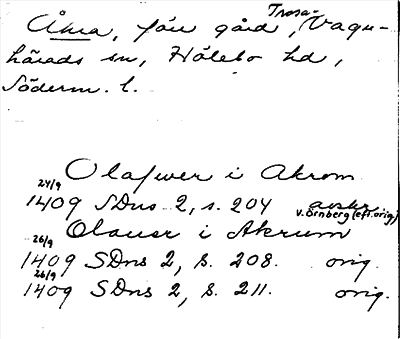 Åkra, förv gård, Trosa-Vagn-
härads sn, Hölebo hd,
Söderm. l.
Olafwer i Akrom
24/9
1409 SDns 2, s. 204 avskr
v. Örnberg (eft. orig)
Olauer i Akrum
26/9
1409 SDns 2, s. 208. orig.
26/9
1409 SDns 2, s. 211. orig.